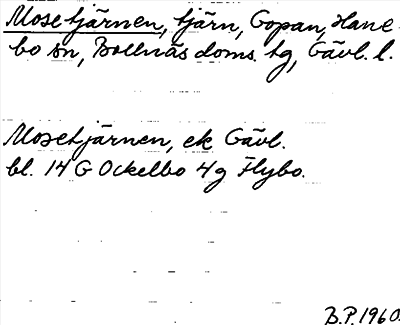 Mosetjärnen, tjärn, Gopan, Hane-
bo sn, Bollnäs doms. tg, Gävl. l.
Mosetjärnen, ek Gävl.
bl. 14 G Ockelbo 4g Flybo.
B.P. 1960.